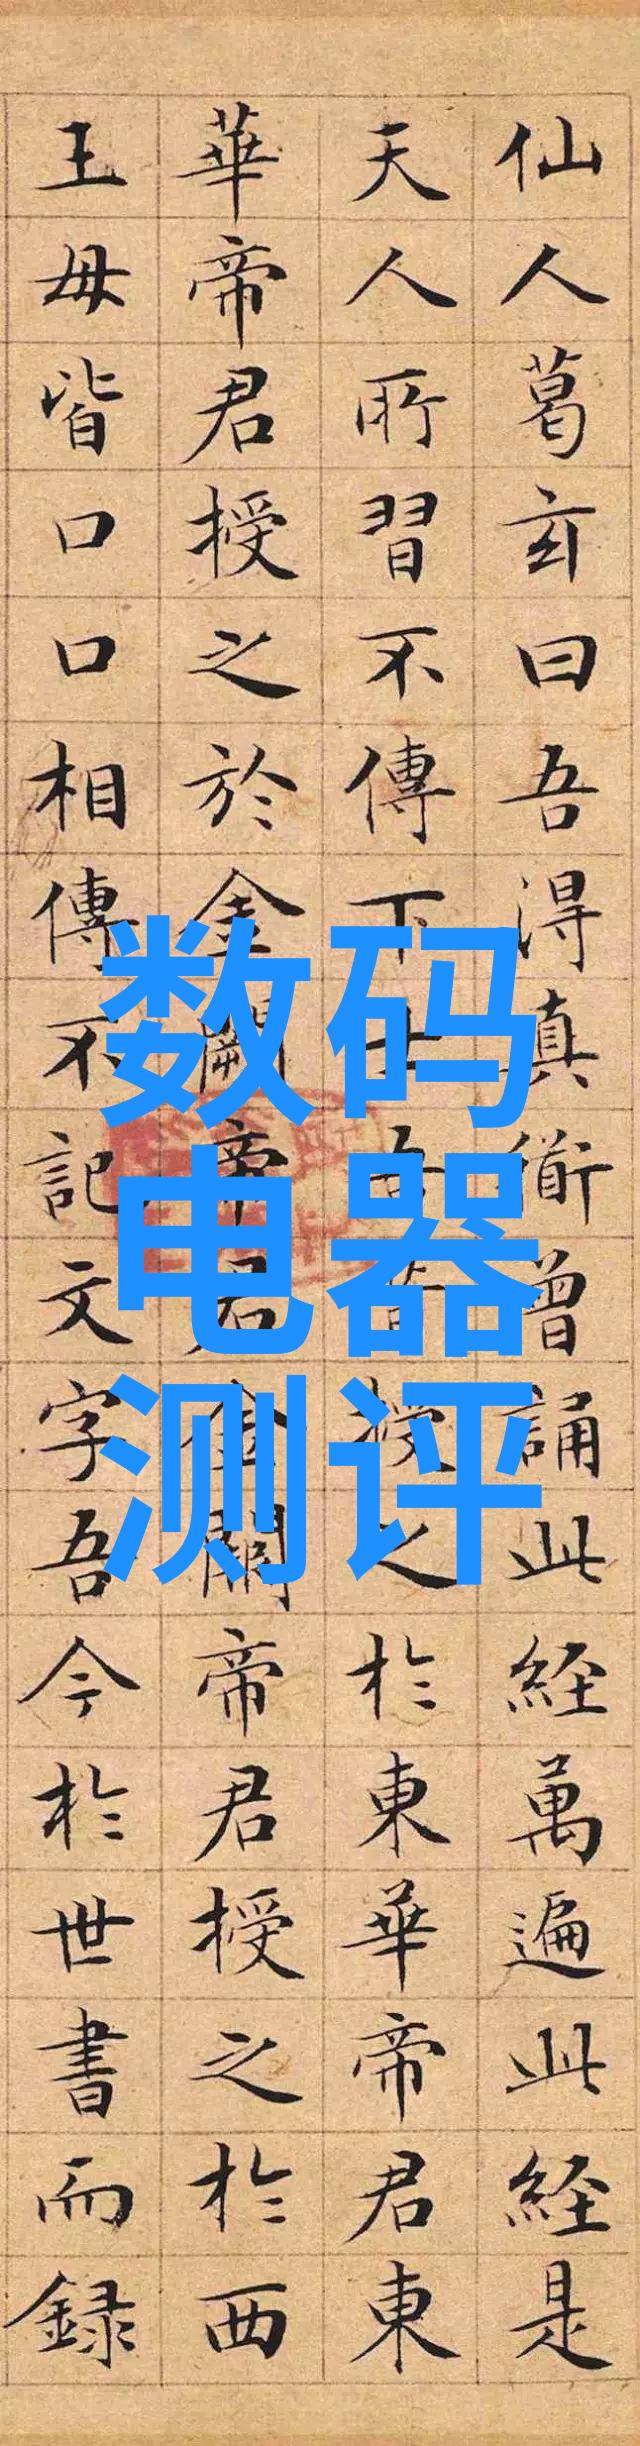 仙人葛玄曰吾得真衜曾誦此経萬遍此経是
天人所習不傳下士吾昔授之於東華帝君東
華帝君授之於金闕帝君金闕帝君授之於西
王母皆口口相傳不記文字吾今於世書而録
数码
电器
测评